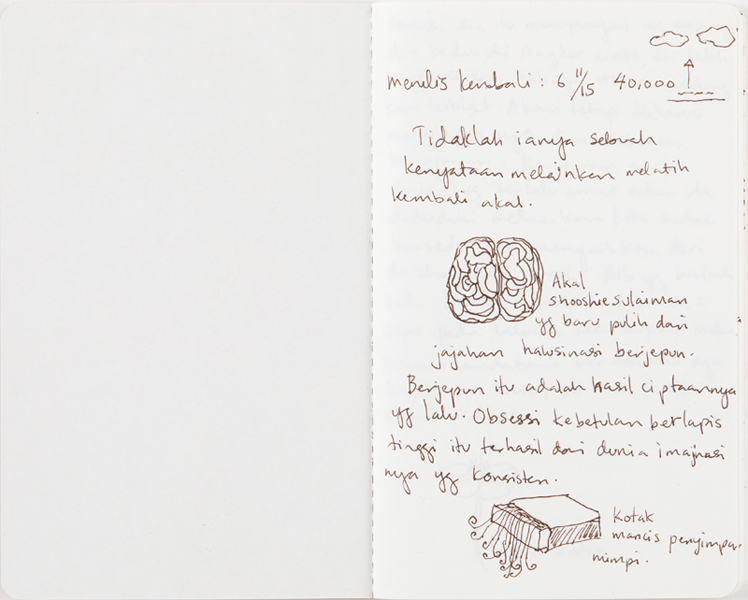 menulis kembali : 6 11/15 40,000
Tidaklah ianya sebuah
kenyataan melainkan melatih
kembali akal.
Akal
shooshiesulaiman
yg baru pulih dari
jajahan halusinasi berjepun.
Berjepun itu adalah hasil ciptaannya
yg lalu. Obsessi kebetulan berlapis
tinggi itu terhasil dari dunia imajinasi
nya yg konsisten.
Kotak
mancis penyimpan
mimpi.